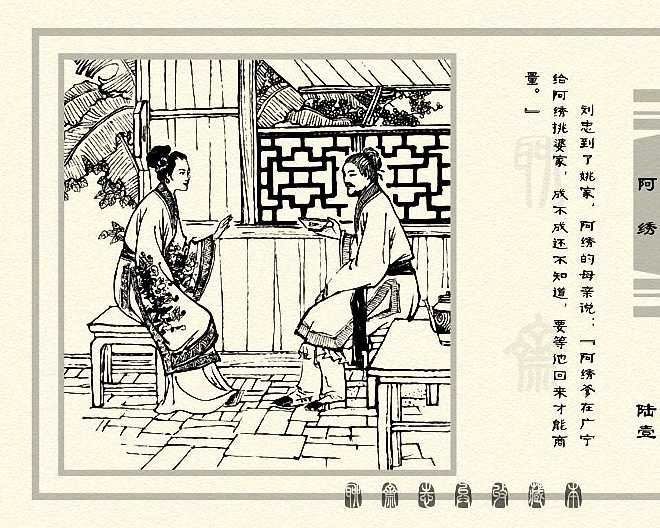 刘忠到了姚家，阿绣的母亲说：「阿绣爹在广宁
给阿绣挑婆家，成不成还不知道，要等他回来才能商
量。」
阿绣
陆壹
聊斋志异收藏本